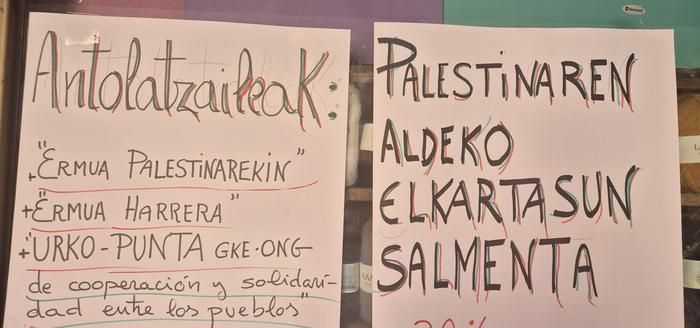 Antolatzaileak:
+"ERMUA PALESTINAREKIN"
+"ERMUA HARRERA"
+"URKO-PUNTA GKE-ONG
de cooperación y solidari-
dad entre los pueblos"
PALESTINAREN
ALDEKO
ELKARTASUN
SALMENTA